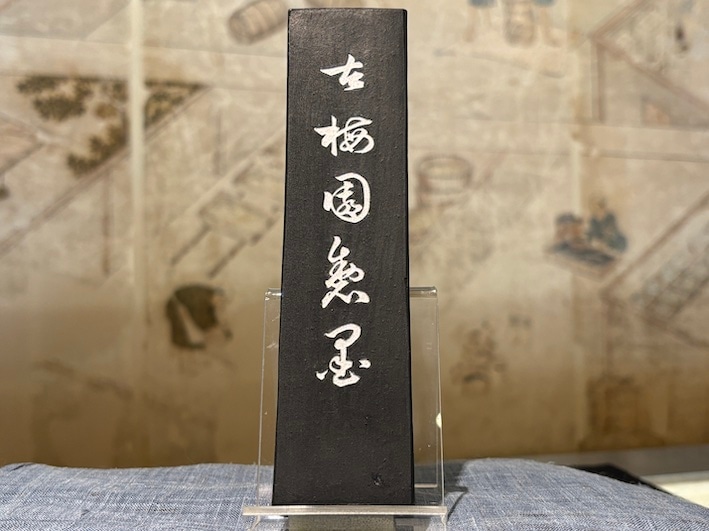 古梅園製墨